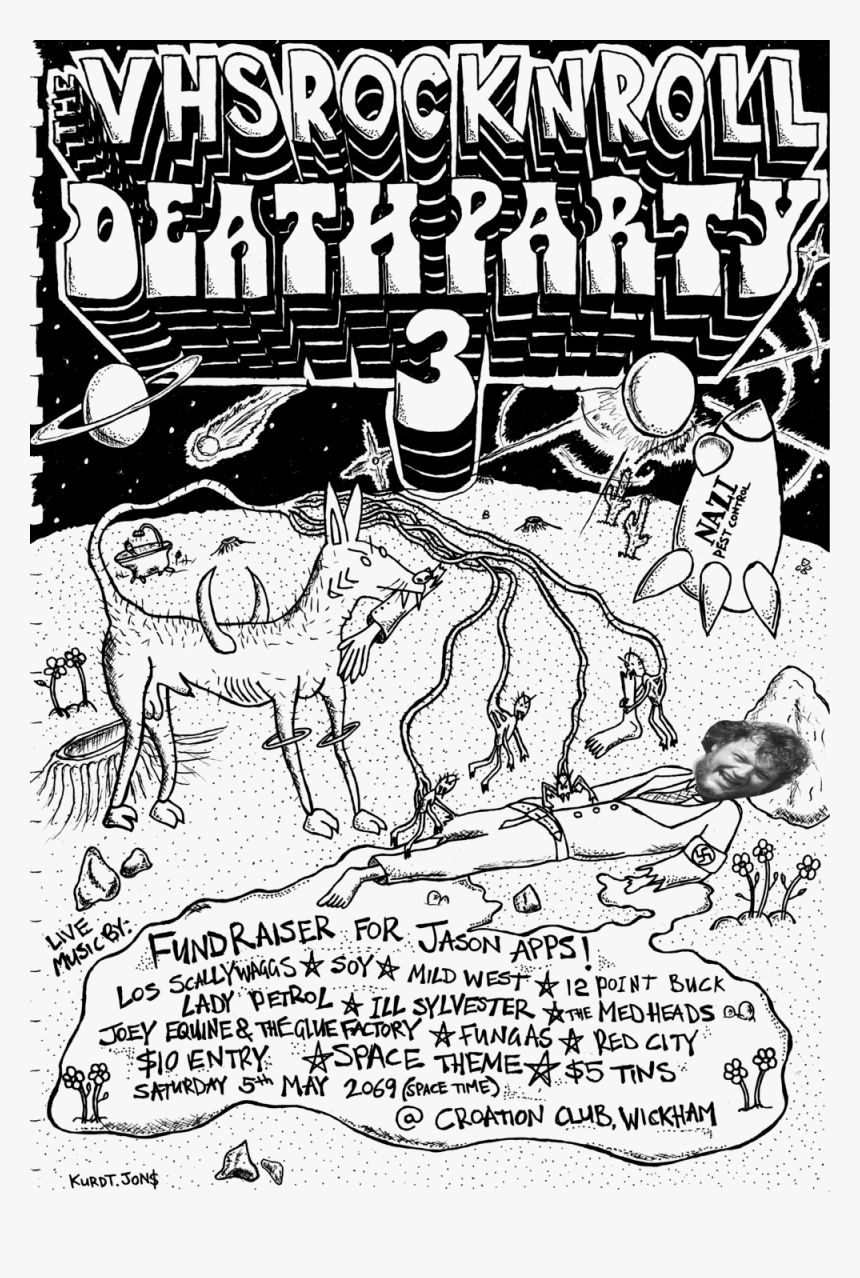 THE
VHS ROCK N ROLL
DEATH PARTY
3
NAZI
PEST CONTROL
LIVE
MUSIC BY:
FUNDRAISER FOR JASON APPS!
LOS SCALLYWAGGS ☆ SOY ☆ MILD WEST ☆ 12 POINT BUCK
LADY PETROL ☆ ILL SYLVESTER ☆ THE MEDHEADS
JOEY EQUINE & THE GLUE FACTORY ☆ FUNGAS ☆ RED CITY
$10 ENTRY ☆ SPACE THEME ☆ $5 TINS
SATURDAY 5th MAY 2069 (SPACE TIME)
@ CROATION CLUB, WICKHAM
KURDT. JON$